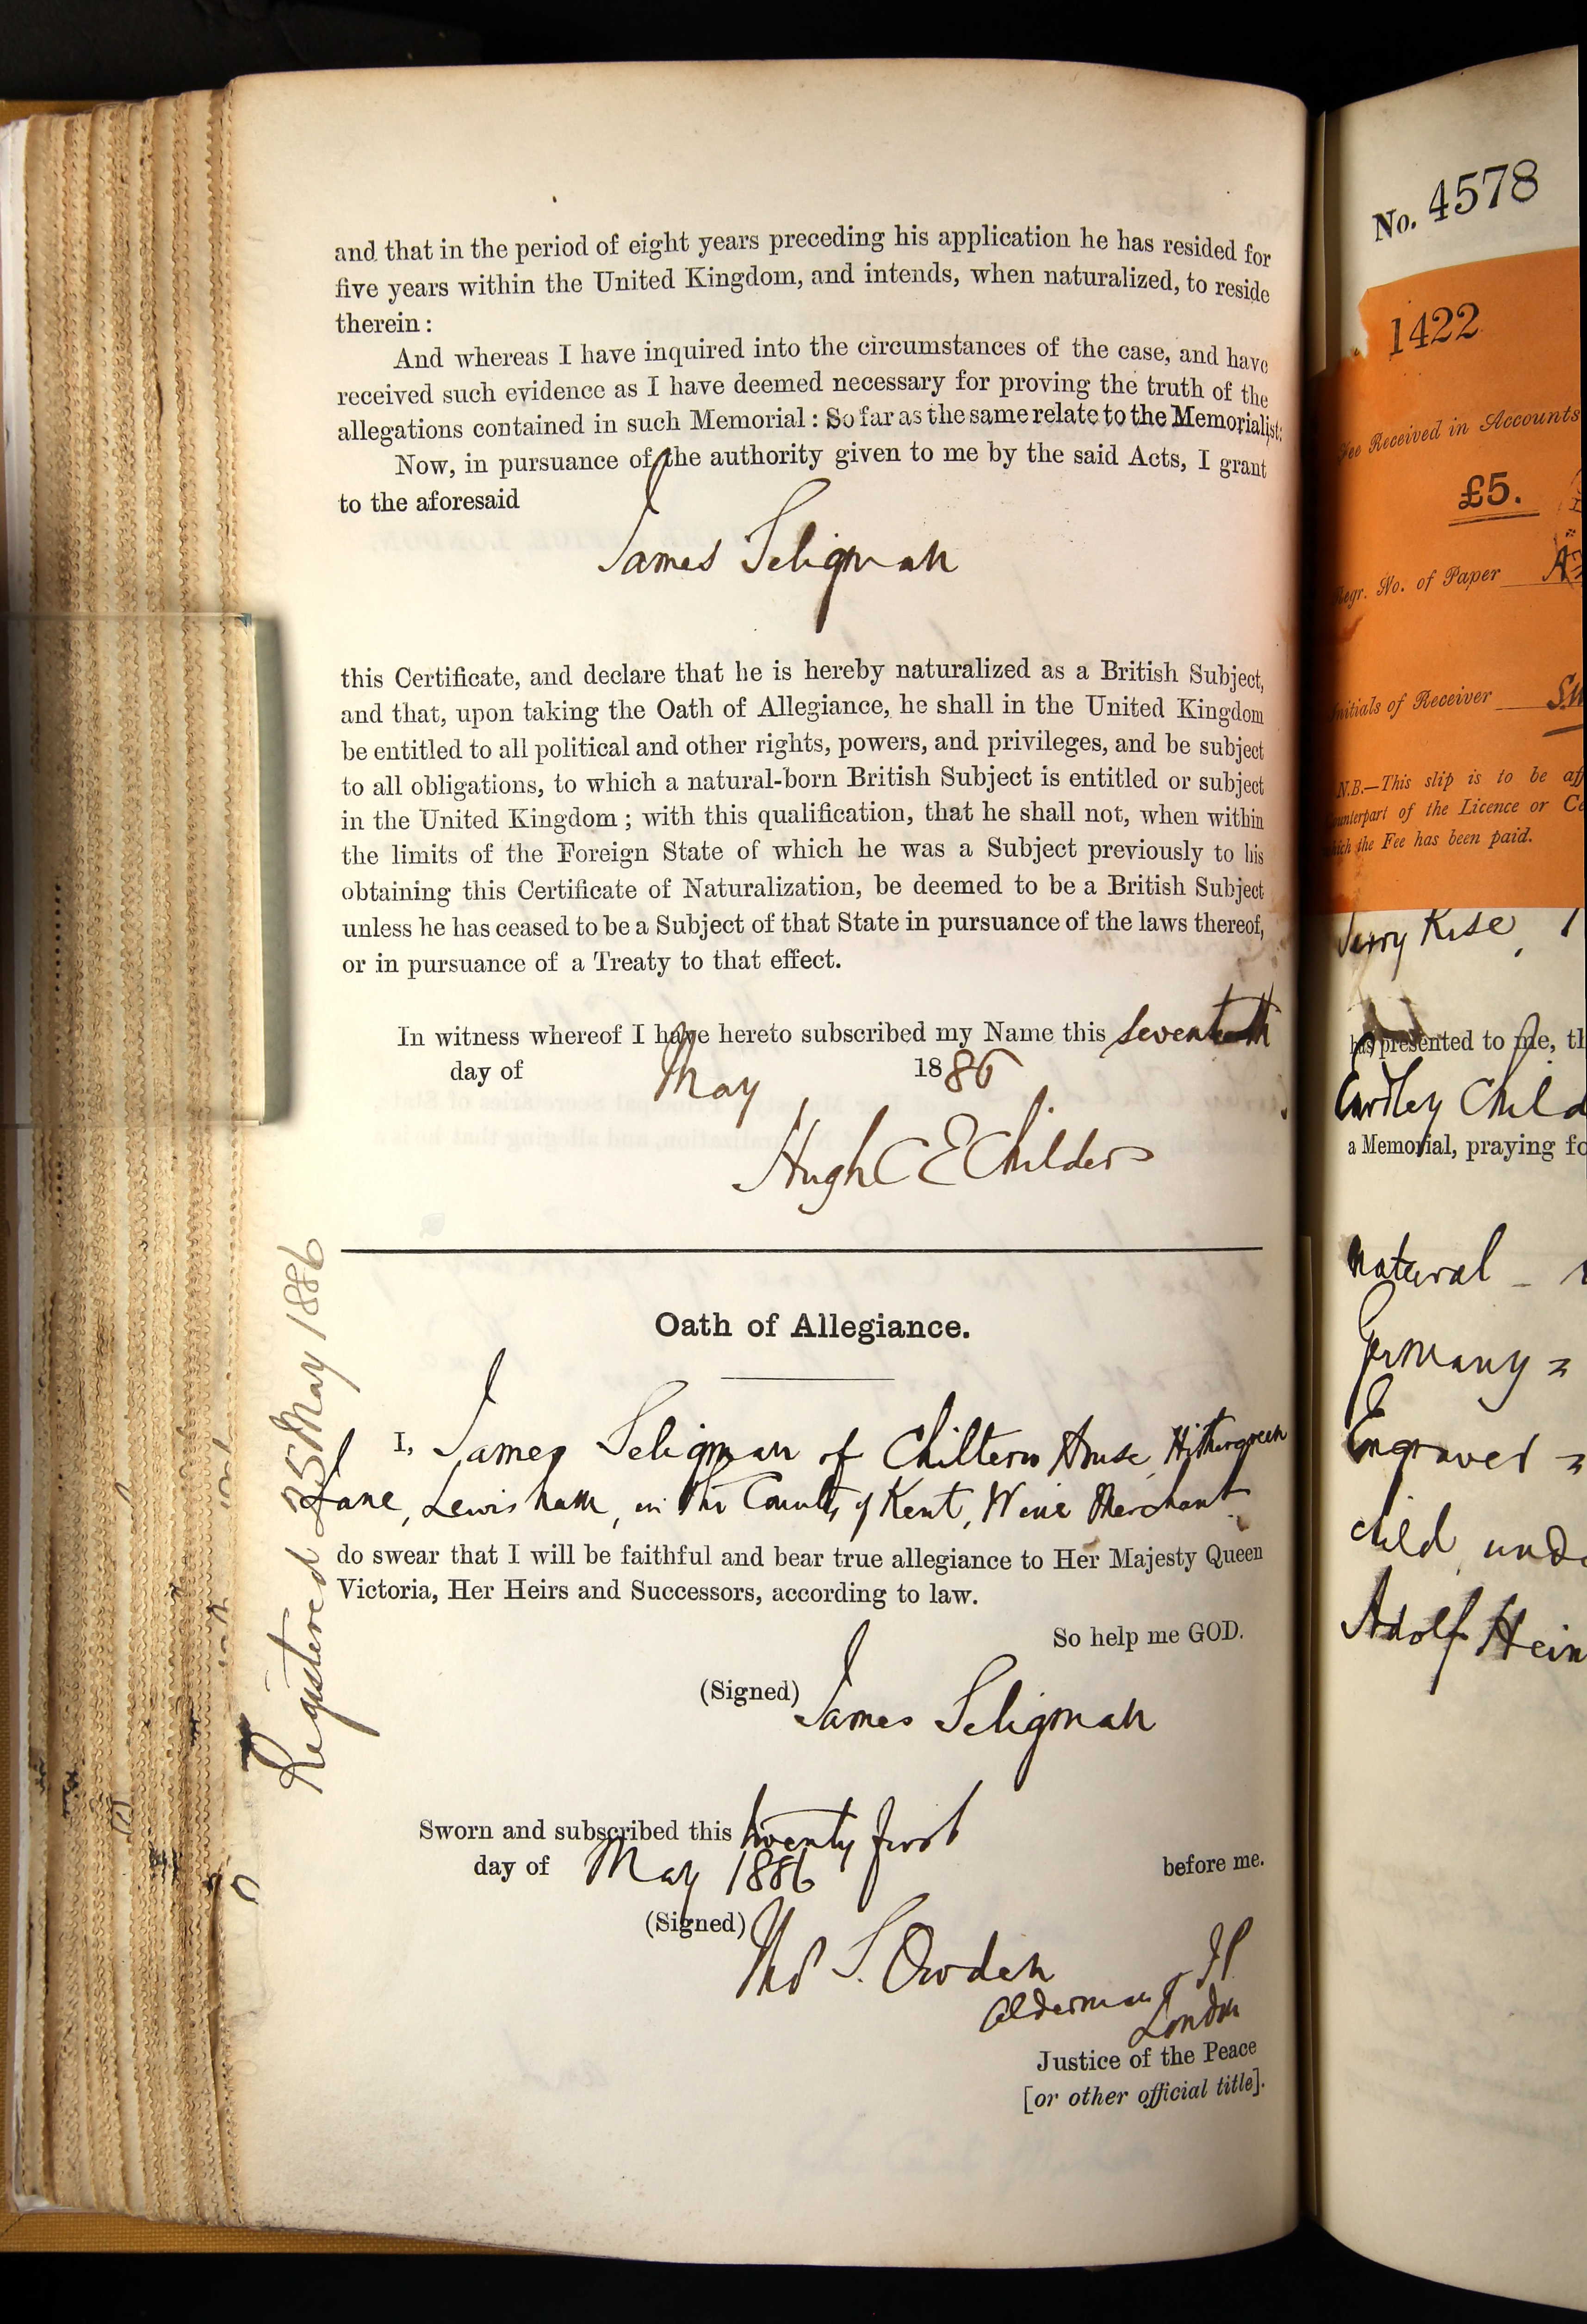 and that in the period of eight years preceding his application he has resided for
five years within the United Kingdom, and intends, when naturalized, to reside
therein :
And whereas I have inquired into the circumstances of the case, and have
received such evidence as I have deemed necessary for proving the truth of the
allegations contained in such Memorial : So far as the same relate to the Memorialist:
Now, in pursuance of the authority given to me by the said Acts, I grant
to the aforesaid
James Seligman
this Certificate, and declare that he is hereby naturalized as a British Subject,
and that, upon taking the Oath of Allegiance, he shall in the United Kingdom
be entitled to all political and other rights, powers, and privileges, and be subject
to all obligations, to which a natural-born British Subject is entitled or subject
in the United Kingdom ; with this qualification, that he shall not, when within
the limits of the Foreign State of which he was a Subject previously to his
obtaining this Certificate of Naturalization, be deemed to be a British Subject
unless he has ceased to be a Subject of that State in pursuance of the laws thereof,
or in pursuance of a Treaty to that effect.
In witness whereof I have hereto subscribed my Name this seventeenth
day of May 1886
Hugh C E Childers
Registered 25 May 1886
Oath of Allegiance.
I, James Seligman of Chiltern House, Hithergreen
Lane, Lewisham, in the County of Kent, Wine Merchant
do swear that I will be faithful and bear true allegiance to Her Majesty Queen
Victoria, Her Heirs and Successors, according to law.
So help me GOD.
(Signed) James Seligman
Sworn and subscribed this twenty first
day of May 1886 before me.
(Signed) Thos S. Owden
Alderman & JP
London
Justice of the Peace
[or other official title].
No. 4578
1422
Fee Received in Accounts
£5.
Regr. No. of Paper A
Initials of Receiver S.W
N.B.—This slip is to be
Counterpart of the Licence or
which the Fee has been paid.
Rise,
has presented to me,
Child
a Memorial, praying
natural
Germany
Engraver
child
Adolf Hein